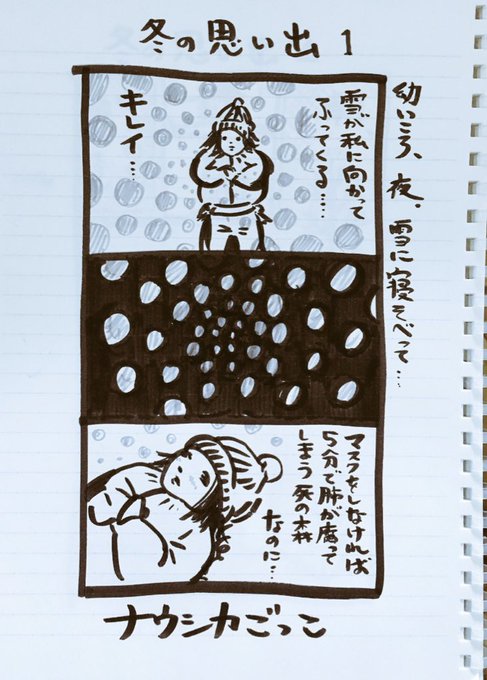 冬の思い出 1
幼いころ、夜、雪に寝そべって…
雪が私に向かって
ふってくる……
キレイ……
マスクをしなければ
5分で肺が腐って
しまう死の森
なのに…
ナウシカごっこ